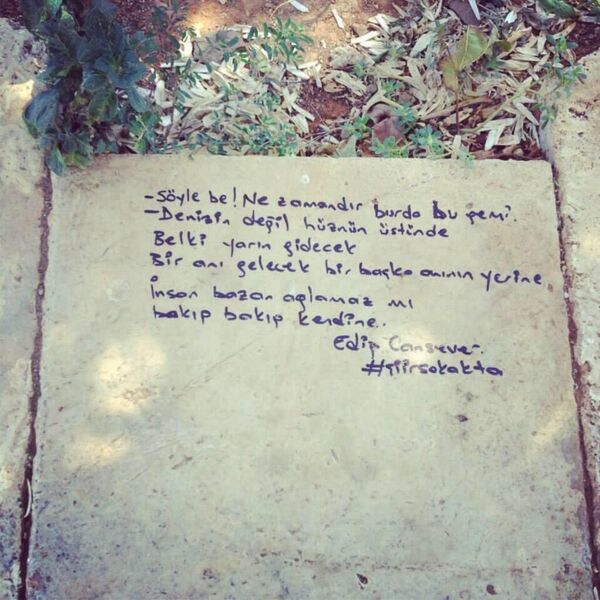 -Söyle be! Ne zamandır burda bu gemi.
-Denizin değil hüznün üstünde
Belki yarın gidecek
Bir anı gelecek bir başka anının yerine
İnsan bazan ağlamaz mı
bakıp bakıp kendine..
Edip Cansever.
#şiirsokakta